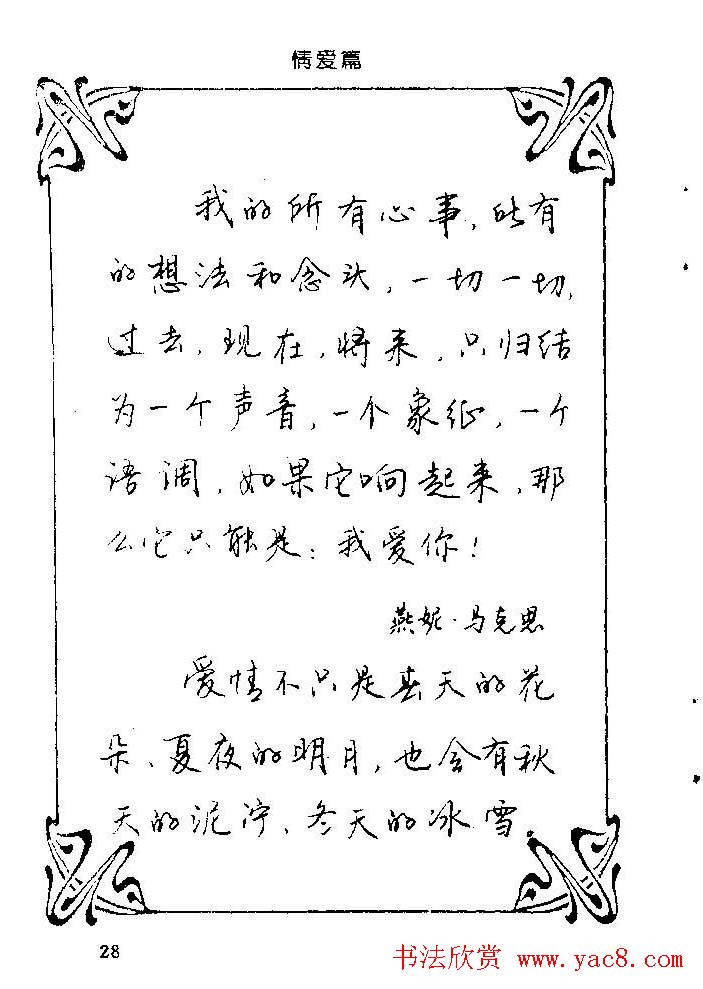 情爱篇
我的所有心事，所有
的想法和念头，一切一切，
过去，现在，将来，只归结
为一个声音，一个象征，一个
语调，如果它响起来，那
么它只能是：我爱你！
燕妮·马克思
爱情不只是春天的花
朵、夏夜的明月，也会有秋
天的泥泞、冬天的冰雪。
28
书法欣赏 www.yac8.com